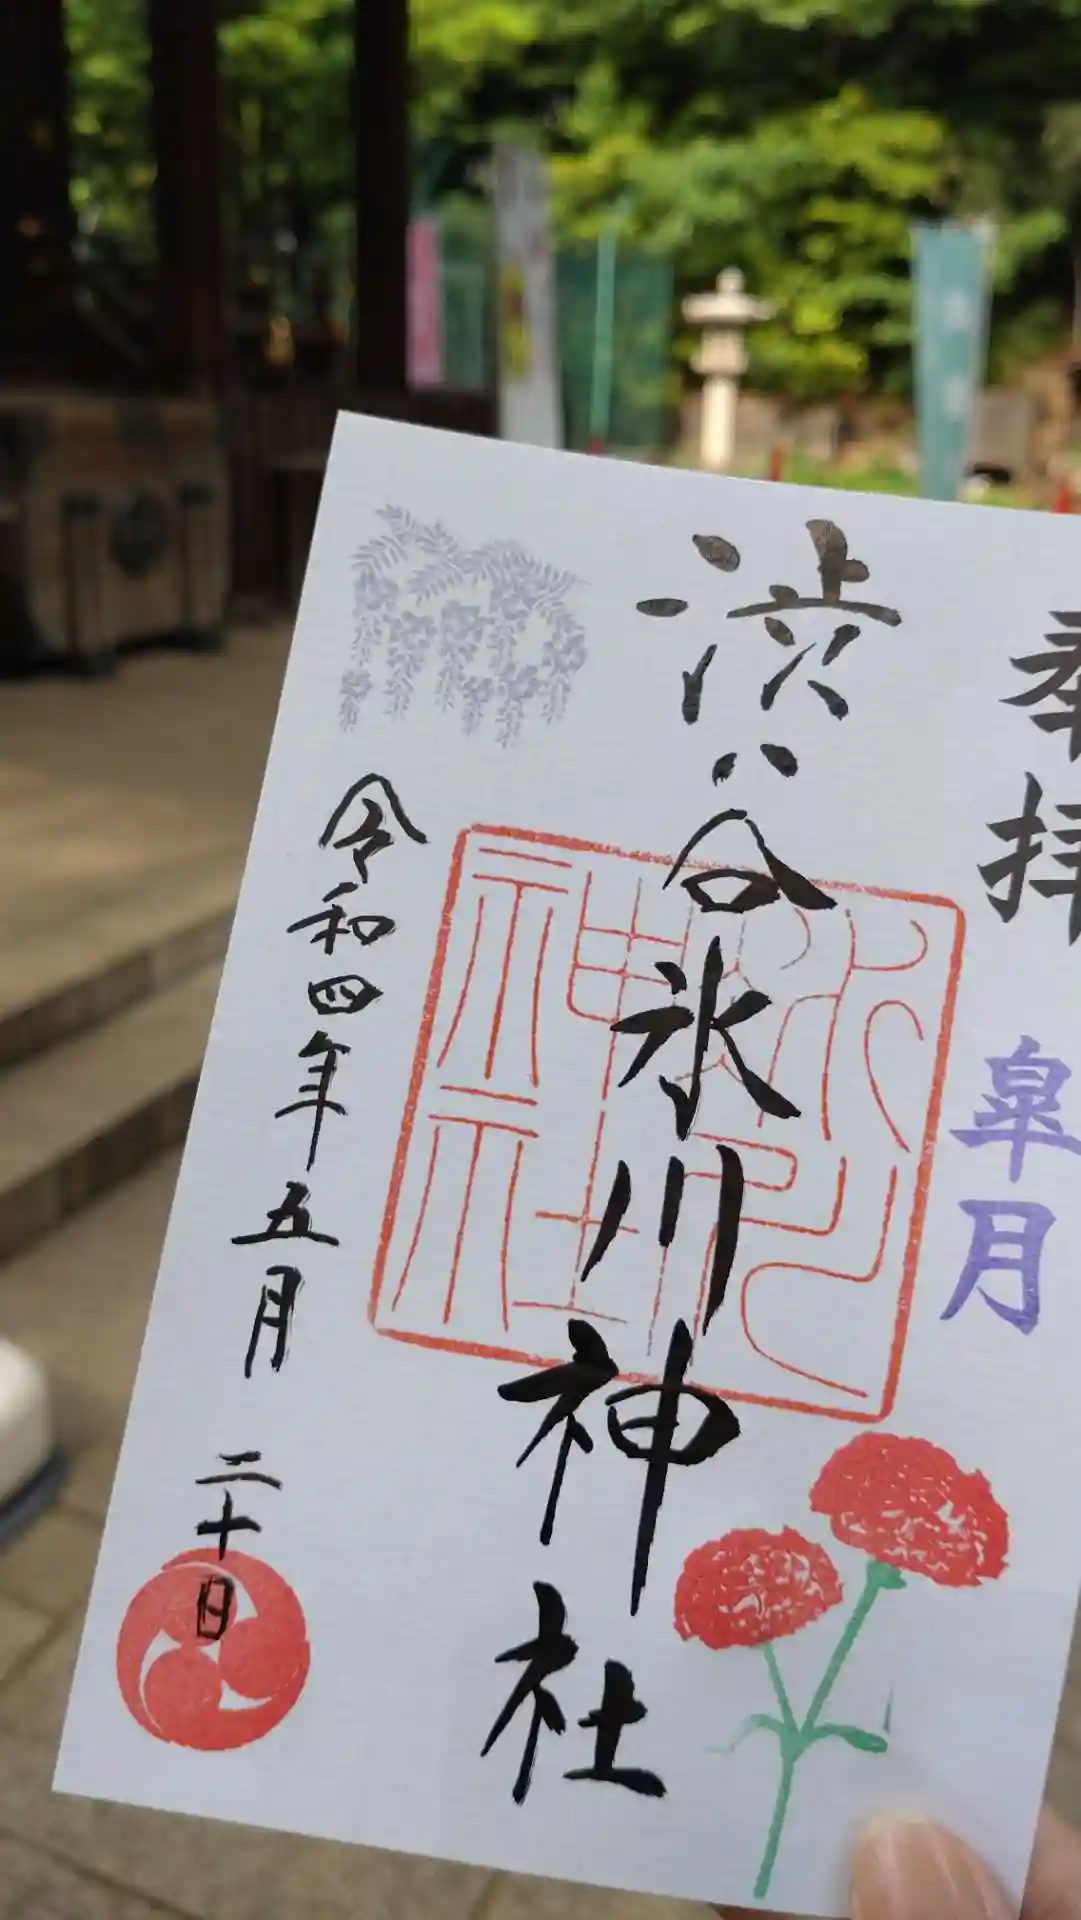 奉拝
皐月
渋谷氷川神社
氷川神社
令和四年五月二十日